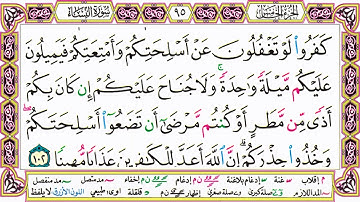 الجزء الخامس ٩٥ سورة النساء
كَفَرُوا۟ لَوْ تَغْفُلُونَ عَنْ أَسْلِحَتِكُمْ وَأَمْتِعَتِكُمْ فَيَمِيلُونَ
عَلَيْكُم مَّيْلَةً وَٰحِدَةً ۚ وَلَا جُنَاحَ عَلَيْكُمْ إِن كَانَ بِكُمْ
أَذًى مِّن مَّطَرٍ أَوْ كُنتُم مَّرْضَىٰٓ أَن تَضَعُوٓا۟ أَسْلِحَتَكُمْ ۖ
وَخُذُوا۟ حِذْرَكُمْ ۗ إِنَّ ٱللَّهَ أَعَدَّ لِلْكَٰفِرِينَ عَذَابًا مُّهِينًا ١٠٢